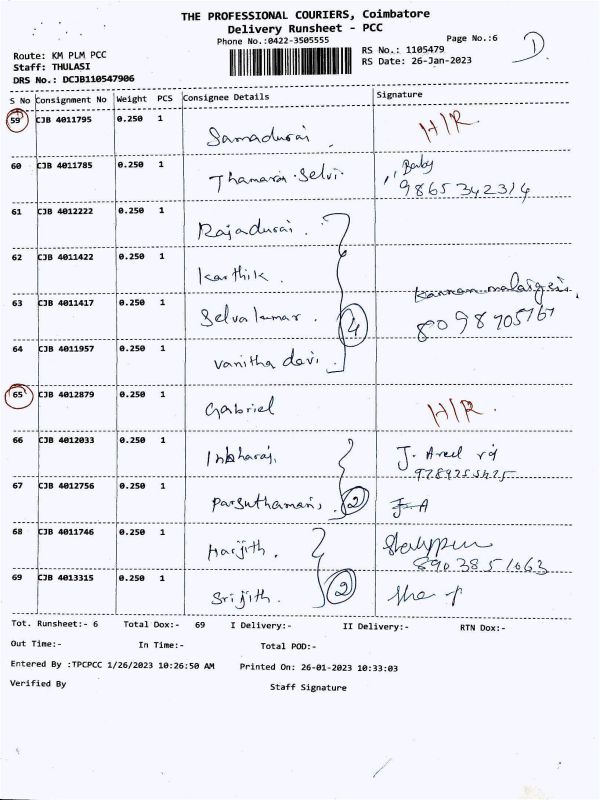 THE PROFESSIONAL COURIERS, Coimbatore
Delivery Runsheet - PCC
Phone No.:0422-3505555
Page No.:6
D
Route: KM PLM PCC
RS No.: 1105479
Staff: THULASI
RS Date: 26-Jan-2023
DRS No.: DCJB110547906
S No Consignment No Weight PCS Consignee Details Signature
59 CJB 4011795 0.250 1 Samadurai H/R
60 CJB 4011785 0.250 1 Thamarai Selvi Baby
9865342314
61 CJB 4012222 0.250 1 Rajadurai.
62 CJB 4011422 0.250 1 Karthik.
63 CJB 4011417 0.250 1 Selvakumar. 4
8098705767
64 CJB 4011957 0.250 1 Vanitha devi.
65 CJB 4012879 0.250 1 Gabriel H/R.
66 CJB 4012033 0.250 1 Inbharaj,
67 CJB 4012756 0.250 1 2 J-A
68 CJB 4011746 0.250 1 Harjith.
8903851663
69 CJB 4013315 0.250 1 Srijith. 2
Tot. Runsheet:- 6 Total Dox:- 69 I Delivery:- II Delivery:- RTN Dox:-
Out Time:- In Time:- Total POD:-
Entered By :TPCPCC 1/26/2023 10:26:50 AM Printed On: 26-01-2023 10:33:03
Verified By Staff Signature